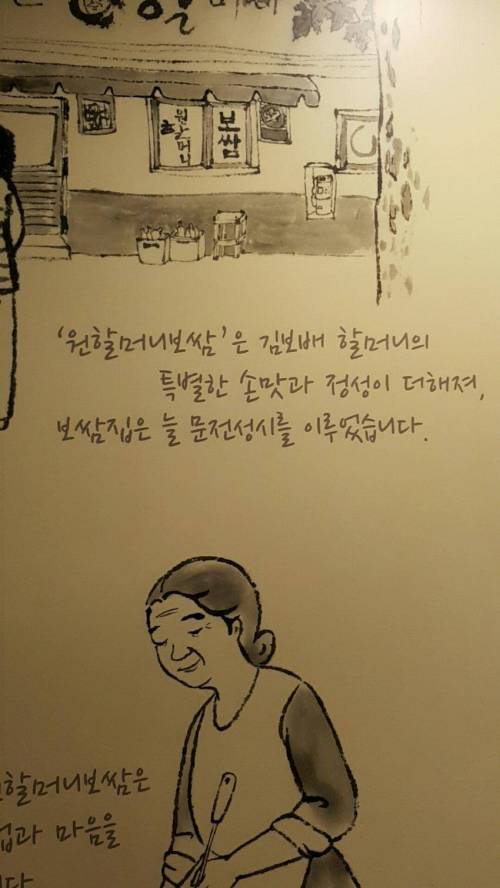 원할머니
보쌈
'원할머니보쌈'은 김보배 할머니의
특별한 손맛과 정성이 더해져,
보쌈집은 늘 문전성시를 이루었습니다.
할머니보쌈은
마음을